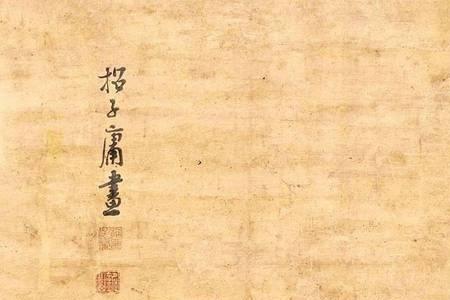 招子庸畫